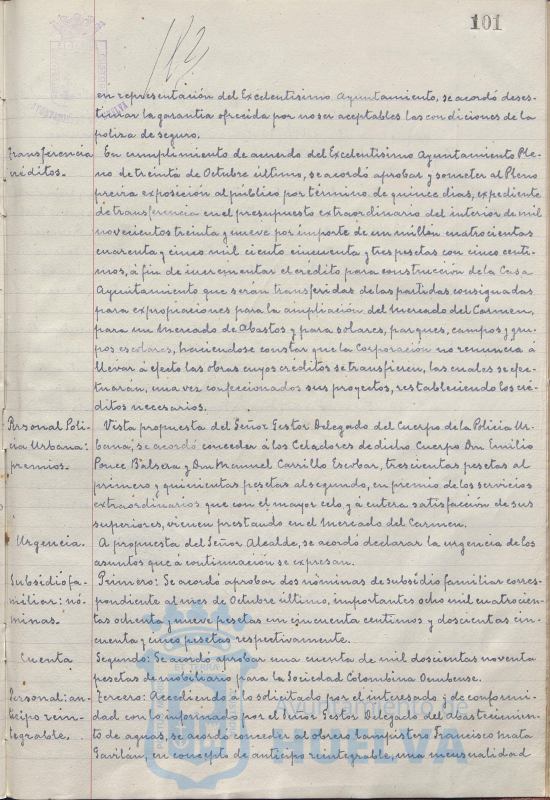 101
en representación del Excelentísimo Ayuntamiento, se acordó deses-
timar la garantia ofrecida por no ser aceptables las condiciones de la
poliza de seguro.
Transferencia
créditos.
En cumplimiento de acuerdo del Excelentísimo Ayuntamiento Ple-
no de treinta de Octubre último, se acordó aprobar y someter al Pleno
previa exposición al público por término de quince dias, expediente
de transferencia en el presupuesto extraordinario del interior de mil
novecientos treinta y nueve por importe de un millón cuatrocientas
cuarenta y cinco mil ciento cincuenta y tres pesetas con cinco centi-
mos, á fin de incrementar el crédito para construcción de la Casa
Ayuntamiento que serán transferidas de las partidas consignadas
para expropiaciones para la ampliación del Mercado del Carmen,
para un Mercado de Abastos y para solares, parques, campos y gru-
pos escolares, haciendose constar que la Corporación no renuncia á
llevar á efecto las obras cuyos créditos se transfieren, las cuales se efec-
tuarán, una vez confeccionados sus proyectos, restableciendo los cré-
ditos necesarios.
Personal Poli-
cia Urbana:
premios.
Vista propuesta del Señor Gestor Delegado del Cuerpo de la Policia Ur-
bana, se acordó conceder á los Celadores de dicho Cuerpo Don Emilio
Ponce Balsera y Don Manuel Carrillo Escobar, trescientas pesetas al
primero y quinientas pesetas al segundo, en premio de los servicios
extraordinarios que con el mayor celo y á entera satisfacción de sus
superiores, vienen prestando en el Mercado del Carmen.
Urgencia.
A propuesta del Señor Alcalde, se acordó declarar la urgencia de los
asuntos que á continuación se expresan.
Subsidio fa-
miliar: nó-
minas.
Primero: Se acordó aprobar dos nóminas de subsidio familiar corres-
pondiente al mes de Octubre último, importantes ocho mil cuatrocien-
tas ochenta y nueve pesetas con cincuenta centimos y doscientas cin-
cuenta y cinco pesetas respectivamente.
Cuenta
Segundo: Se acordó aprobar una cuenta de mil doscientas noventa
pesetas de mobiliario para la Sociedad Colombina Onubense.
Personal: an-
ticipo rein-
tegrable.
Tercero: Accediendo á lo solicitado por el interesado y de conformi-
dad con lo informado por el Señor Gestor Delegado del abastecimien-
to de aguas, se acordó conceder al obrero lampistero Francisco Mata
Gavilan, en concepto de anticipo reintegrable, una mensualidad
Ayuntamiento de
HUELVA